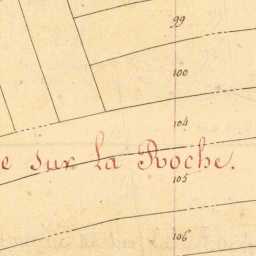 99
100
104
e sur la Roche.
105
106